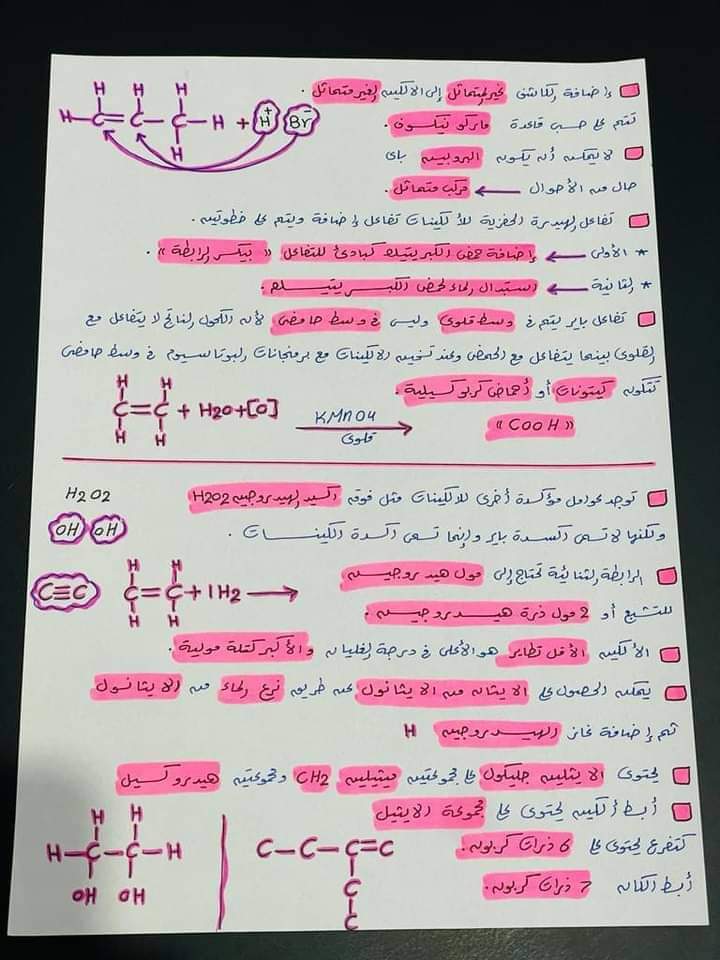 إضافة الكاشف غير المتماثل إلى الألكين الغير متماثل .
تتم على حسب قاعدة ماركونيكوف .
لا يمكن أن يكون البروبين بأى
حال من الأحوال ← مركب متماثل .
H H H
H-C=C-C-H + H+ Br-
H
تفاعل الهيدرة الحفزية للألكينات تفاعل إضافة ويتم على خطوتين .
* الأولى ← إضافة حمض الكبريتيك كبادئ للتفاعل « بيكسر الرابطة » .
* الثانية ← استبدال الماء لحمض الكبريتيك .
تفاعل باير يتم فى وسط قلوى وليس فى وسط حامضى لأن الكحول الناتج لا يتفاعل مع
القلوى بينما يتفاعل مع الحمض وعند تسخين الألكينات مع برمنجانات البوتاسيوم فى وسط حامضى
تتكون كيتونات أو أحماض كربوكسيلية .
« COOH »
H H
C=C + H2O+[O] KMnO4 →
قلوى
H H
توجد عوامل مؤكسدة أخرى للألكينات مثل فوق أكسيد الهيدروجين H2O2
ولكنها لا تسمى أكسدة باير وإنما تسمى أكسدة ألكينات .
H2O2
OH OH
الرابطة الثنائية تحتاج إلى مول هيدروجين
للتشبع أو 2 مول ذرة هيدروجين .
C≡C
H H
C=C+1H2 →
H H
الألكين الأقل تطاير هو الأعلى فى درجة الغليان والأكبر كتلة مولية .
يمكن الحصول على الايثان من الايثانول عن طريق نزع الماء من الايثانول
ثم إضافة غاز الهيدروجين H
يحتوى الايثلين جليكول على مجموعتين ميثيلين CH2 ومجموعتين هيدروكسيل
أبسط ألكين يحتوى على مجموعة الايثيل
كتفرع يحتوى على 6 ذرات كربون .
أبسط الكان 7 ذرات كربون .
C-C-C=C
C
C
H H
H-C-C-H
OH OH